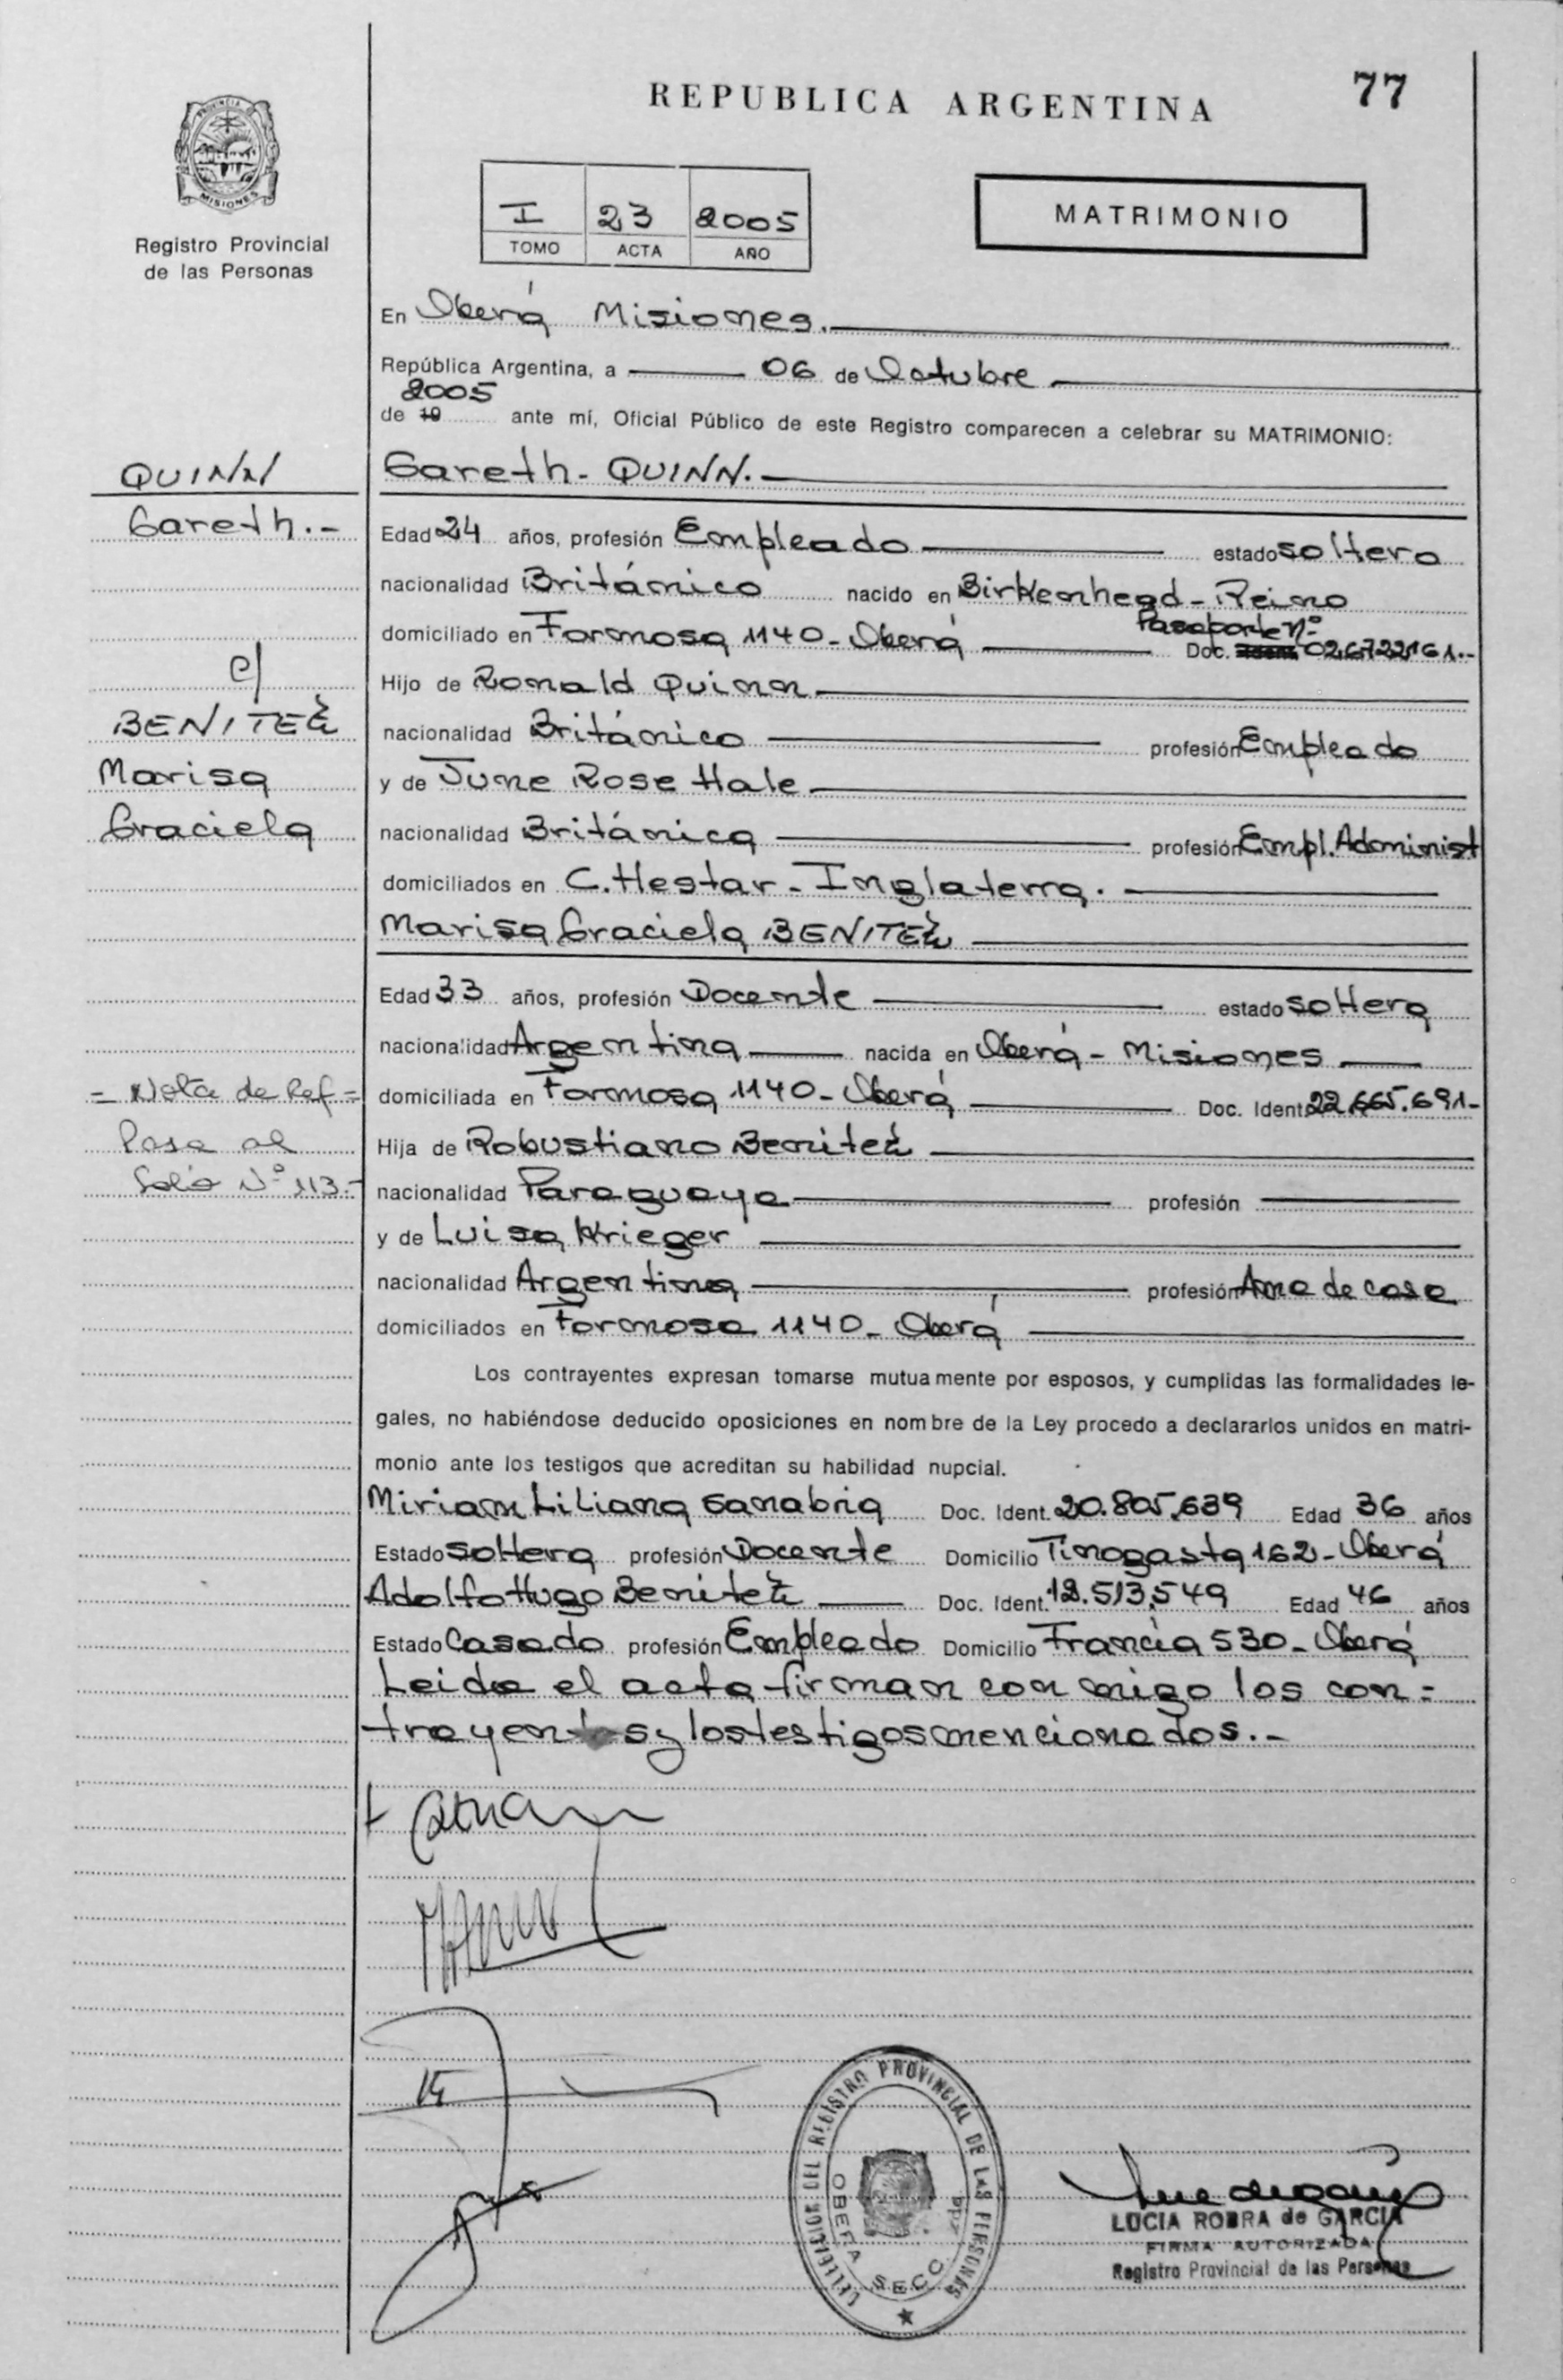 REPUBLICA ARGENTINA
77
PROVINCIA DE
MISIONES
Registro Provincial
de las Personas
I 23 2005
TOMO ACTA AÑO
MATRIMONIO
En Oberá Misiones.
República Argentina, a 06 de Octubre
2005
de 19 ante mí, Oficial Público de este Registro comparecen a celebrar su MATRIMONIO:
QUINN
Gareth.-
c/
BENITEZ
Marisa
Graciela
= Nota de Ref =
Pasa al
Folio Nº 113.-
Gareth - QUINN.
Edad 24 años, profesión Empleado estado soltero
nacionalidad Británico nacido en Birkenhead - Reino
Pasaporte Nº
domiciliado en Formosa 1140 - Oberá Doc. 026722161.-
Hijo de Ronald Quinn
nacionalidad Británico profesión Empleado
y de June Rose Hale
nacionalidad Británica profesión Empl. Administ
domiciliados en C. Hestar - Inglaterra.
Marisa Graciela BENITEZ
Edad 33 años, profesión Docente estado soltera
nacionalidad Argentina nacida en Oberá - Misiones
domiciliada en Formosa 1140 - Oberá Doc. Ident. 22.665.691-
Hija de Robustiano Benitez
nacionalidad Paraguaya profesión
y de Luisa Krieger
nacionalidad Argentina profesión Ama de casa
domiciliados en Formosa 1140 - Oberá
Los contrayentes expresan tomarse mutuamente por esposos, y cumplidas las formalidades le-
gales, no habiéndose deducido oposiciones en nombre de la Ley procedo a declararlos unidos en matri-
monio ante los testigos que acreditan su habilidad nupcial.
Miriam Liliana Sanabria Doc. Ident. 20.805.639 Edad 36 años
Estado soltera profesión Docente Domicilio Tinogasta 162 - Oberá
Adolfo Hugo Benitez Doc. Ident. 12.513.549 Edad 46 años
Estado Casado profesión Empleado Domicilio Francia 530 - Oberá
Leida el acta firman con migo los con=
trayentes y los testigos mencionados.-
DELEGACION DEL REGISTRO PROVINCIAL DE LAS PERSONAS
OBERA SECC.
LUCIA ROBRA de GARCIA
FIRMA AUTORIZADA
Registro Provincial de las Personas